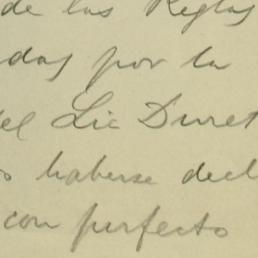 de las Reglas
das por la
del Lic Duret
o haberse decl
con perfecto